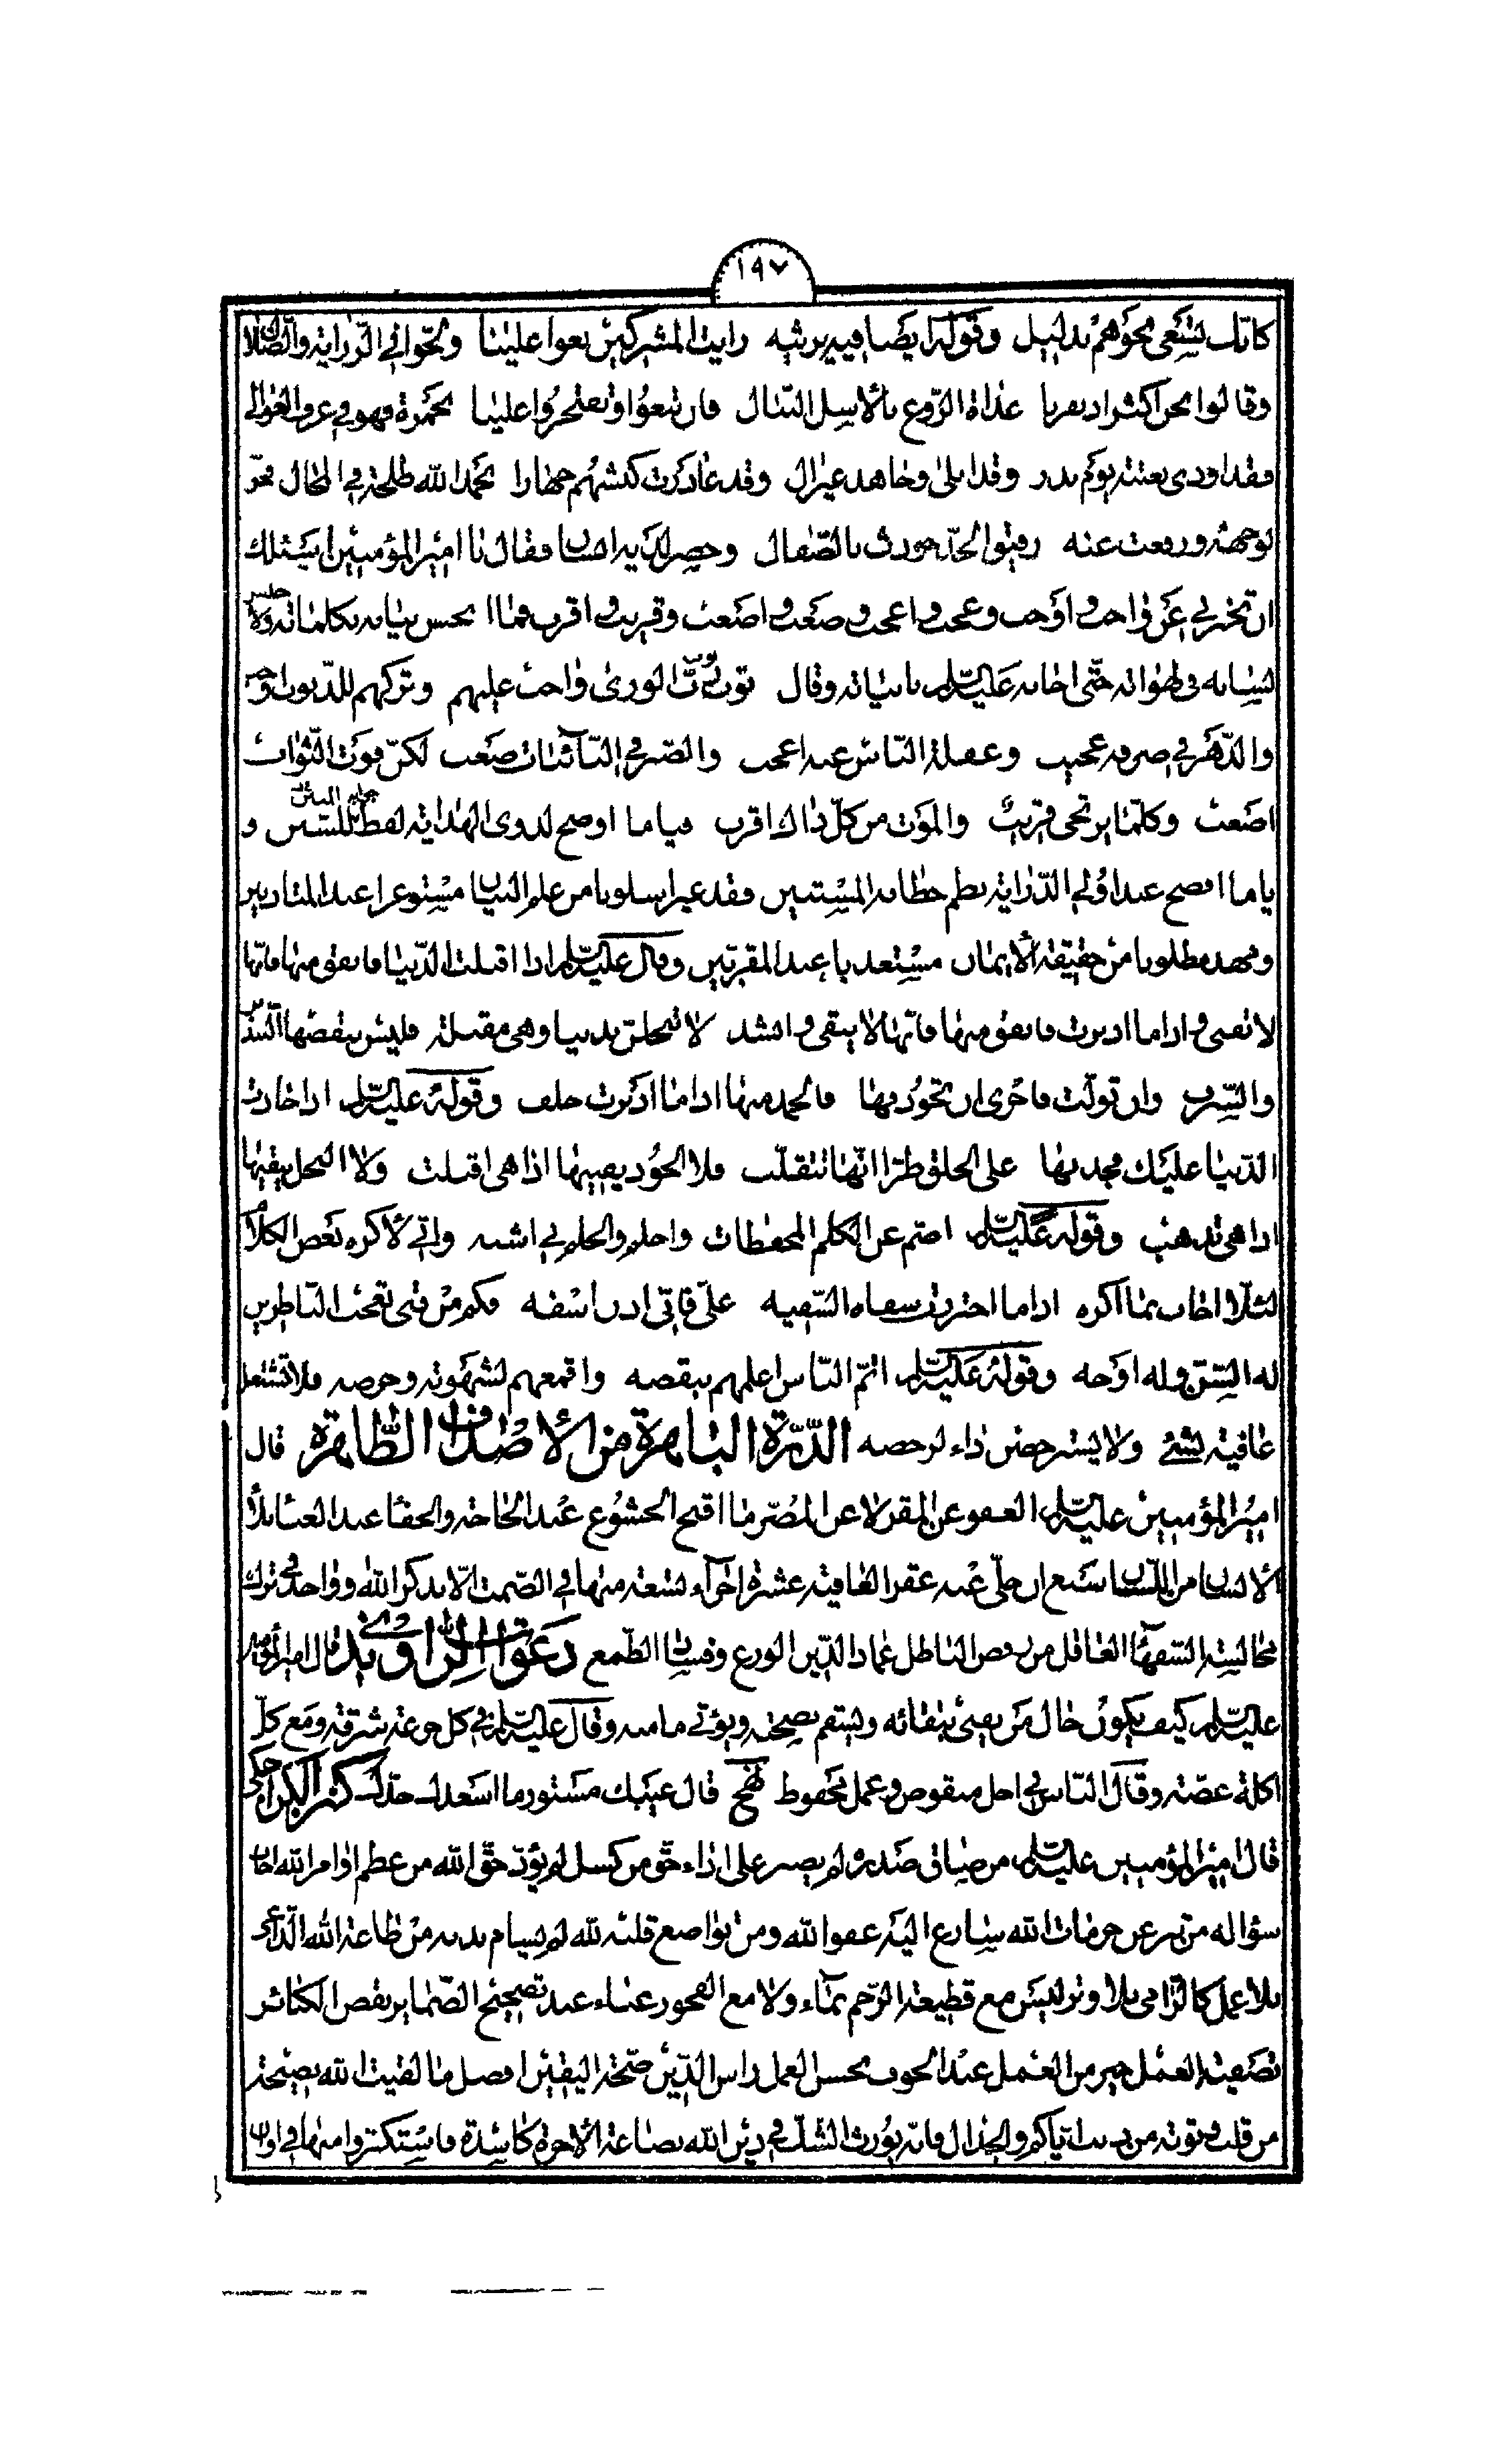 ١٩٧
وقوله ايضا فيه يرثيه رايت المشركين بغوا علينا ولجوا في الغواية والضلال
وقالوا نحن اكثر اذ نفرنا غداة الروع بالاسل النبال فان تبغوا وتفتخروا علينا بحمزة فهو في غرف العوالي
فقد اودى بعتبة يوم بدر وقد ابلى وجاهد غير ال وقد غادرت كبشهم جهارا بحمد الله طلحة في المجال فخر
لوجهه ورفعت عنه رقيق الحد حودث بالصقال فقال يا امير المؤمنين اسئلك
ان تخبرني عن واجب واوجب وعجب واعجب وصعب واصعب وقريب واقرب فما
حتى اجابه عليه السلام بابياته وقال توب الورى واجب عليهم وتركهم للذنوب اوجب
والدهر في صرفه عجيب وغفلة الناس عنه اعجب والصبر في النائبات صعب لكن فوت الثواب
اصعب وكلما يرتجى قريب والموت من كل ذاك اقرب فيا ما اوضح لذوى الهداية
يا ما افصح عند اولي الدراية
وقال عليه السلام اذا اقبلت الدنيا فانفق منها فانها
لا تفنى واذا ما ادبرت فانفق منها فانها لا يبقى وانشد لا تبخلن بدنيا وهى مقبلة فليس ينقصها التبذير
والسرف وان تولت فاحرى ان تجود بها فالحمد منها اذا ما ادبرت خلف وقوله عليه السلام اذا جادت
الدنيا عليك فجد بها على الخلق طرا انها تتقلب فلا الجود يفنيها اذا هى اقبلت ولا البخل يبقيها
اذا هى تذهب وقوله عليه السلام اصم عن الكلم المحفظات واحلم والحلم بي اشبه واني لاكره بعض الكلام
لئلا اجاب بما اكره اذا ما اجتررت سفاه السفيه على فاني اذن اسفه فكم من فتى يعجب الناظرين
له السن وله اوجه وقوله عليه السلام اتم الناس اعلمهم بنقصه واقمعهم لشهوته وحرصه
عافية بشئ ولا يسترخص داء لرخصه الدرة الباهرة من الاصداف الطاهرة قال
امير المؤمنين عليه السلام العفو عن المقر لا عن المصر ما اقبح الخشوع عند الحاجة والجفاء عند الغناء بلاء
الانسان من اللسان العافية عشرة اجزاء تسعة منها في الصمت الا بذكر الله وواحد في ترك
مجالسة السفهاء العاقل من رفض الباطل عماد الدين الورع وفساده الطمع دعوات الراوندي قال امير المؤمنين
عليه السلام كيف يكون حال من يفنى ببقائه ويسقم بصحته ويؤتى ما منه وقال عليه السلام في كل جرعة شرقة ومع كل
اكلة غصة وقال الناس في اجل منقوص وعمل محفوظ نهج قال عيبك مستور ما اسعدك جدك كنز الكراجكي
قال امير المؤمنين عليه السلام من ضاق صدره لم يصبر على اداء حق من كسل لم يؤد حق الله من عظم اوامر الله اجاب
سؤاله من تنزه عن حرمات الله سارع اليه عفو الله ومن تواضع قلبه لله لم يسام بدنه من طاعة الله الداعي
بلا عمل كالرامي بلا وتر ليس مع قطيعة الرحم نماء ولا مع الفجور غناء عند تصحيح الضماير
تصفية العمل خير من العمل عند الخوف يحسن العمل راس الدين صحة اليقين افضل ما لقيت الله به نصيحة
من قلب وتوبة من ذنب اياكم والجدال فانه يورث الشك في دين الله بضاعة الاخرة كاسدة فاستكثروا منها في اوان